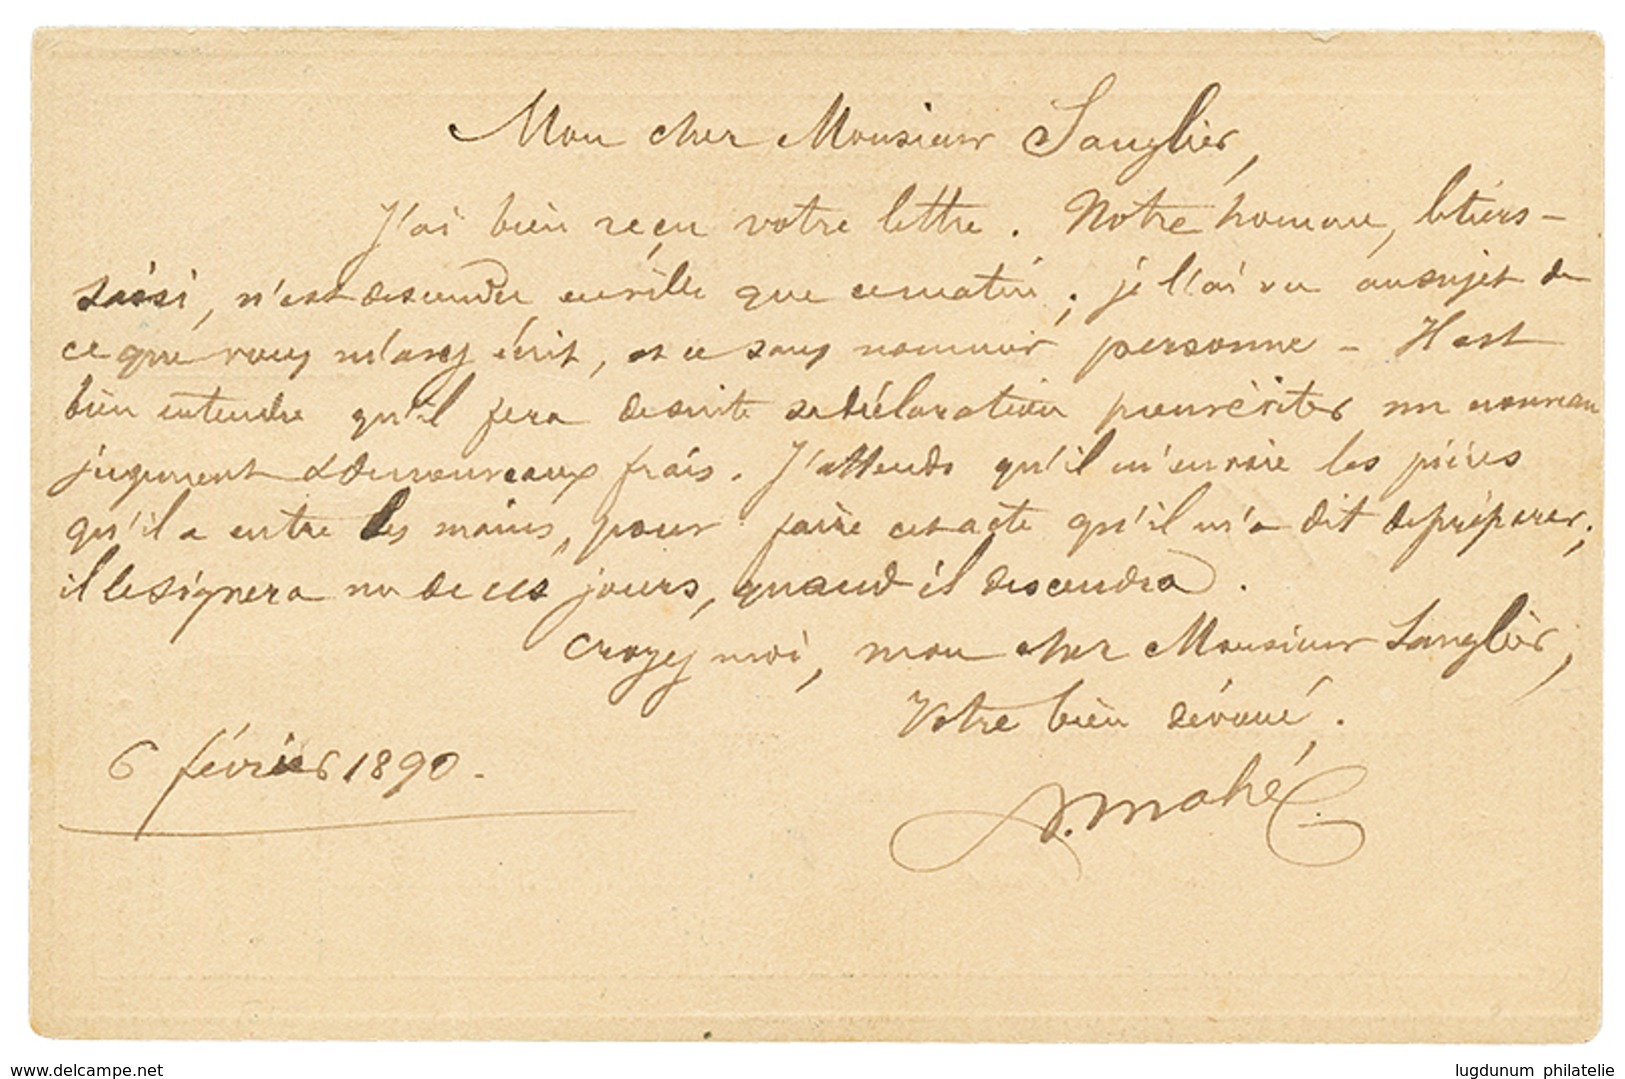 Mon cher Monsieur Sanglier,
J'ai bien reçu votre lettre. Notre homme, le tiers-
saisi, n'est descendu en ville que ce matin; je l'ai vu au sujet de
ce que vous m'avez écrit, et ce sans nommer personne - Il est
bien entendu qu'il fera de suite sa déclaration pour éviter un nouveau
jugement & de nouveaux frais. J'attends qu'il m'envoie les pièces
qu'il a entre les mains, pour faire cet acte qu'il m'a dit de préparer;
il le signera un de ces jours, quand il descendra.
Croyez moi, mon cher Monsieur Sanglier,
Votre bien dévoué.
6 février 1890.
A. Mahé
delcampe.net
lugdunum philatelie